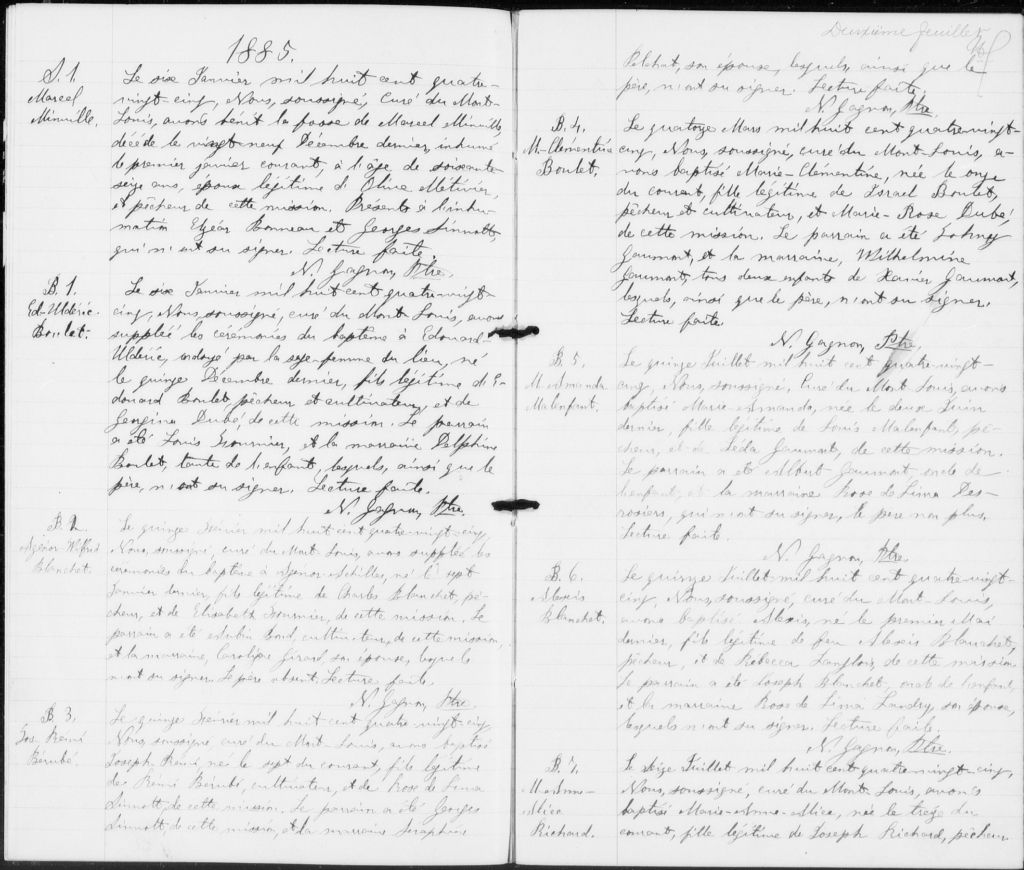 1885.
S. 1.
Marcel
Minville.
Le six Janvier mil huit cent quatre-
vingt-cinq, Nous, soussigné, curé du Mont-
Louis, avons bénit la fosse de Marcel Minville,
décédé le vingt neuf Décembre dernier, inhumé
le premier janvier courant, à l'âge de soixante
seize ans, époux légitime d'Olive Métivier,
et pêcheur de cette mission. Présents à l'inhu-
mation Elzéar Bonneau et Georges Sinnott,
qui n'ont su signer. Lecture faite.
N. Gagnon, Ptre.
B. 1.
Ed-Uldéric
Boulet.
Le six Janvier mil huit cent quatre-vingt-
cinq, Nous, soussigné, curé du Mont Louis, avons
suppléé les cérémonies du baptême à Edouard-
Uldéric, ondoyé par la sage-femme du lieu, né
le quinze Décembre dernier, fils légitime d'E-
douard Boulet, pêcheur et cultivateur, et de
Georgina Dubé, de cette mission. Le parrain
a été Louis Fournier, et la marraine Delphine
Boulet, tante de l'enfant, lesquels, ainsi que le
père, n'ont su signer. Lecture faite.
N. Gagnon, Ptre.
B. 2.
Agénor-Wilfrid
Blanchet.
Le quinze Février mil huit cent quatre-vingt-cinq,
Nous, soussigné, curé du Mont Louis, avons suppléé les
cérémonies du baptême à Agénor-Achilles, né le sept
Janvier dernier, fils légitime de Charles Blanchet, pê-
cheur, et de Elisabeth Fournier, de cette mission. Le
parrain a été Aubin Bond, cultivateur, de cette mission
et la marraine, Caroline Girard, son épouse, lesquels
n'ont su signer. Le père absent. Lecture faite.
N. Gagnon, Ptre.
B. 3.
Jos. Rémi
Bérubé.
Le quinze Février mil huit cent quatre-vingt-cinq,
Nous, soussigné, curé du Mont-Louis, avons baptisé
Joseph Rémi, né le sept du courant, fils légitime
de Rémi Bérubé, cultivateur, et de Rose de Lima
Sinnott, de cette mission. Le parrain a été Georges
Sinnott, de cette mission, et la marraine Séraphine
Deuxième feuillet
Pelchat, son épouse, lesquels, ainsi que le
père, n'ont su signer. Lecture faite.
N. Gagnon, Ptre.
B. 4.
M-Clémentine
Boulet.
Le quatorze Mars mil huit cent quatre-vingt-
cinq, Nous, soussigné, curé du Mont Louis, a-
vons baptisé Marie-Clémentine, née le onze
du courant, fille légitime de Israel Boulet,
pêcheur et cultivateur, et Marie-Rose Dubé,
de cette mission. Le parrain a été Johney
Gaumont, et la marraine, Wilhelmine
Gaumont, tous deux enfants de Xavier Gaumont,
lesquels, ainsi que le père, n'ont su signer.
Lecture faite.
N. Gagnon, Ptre
B. 5.
M. Amanda
Malenfant.
Le quinze Juillet mil huit cent quatre-vingt-
cinq, Nous, soussigné, Curé du Mont Louis, avons
baptisé Marie-Amanda, née le deux Juin
dernier, fille légitime de Louis Malenfant, pê-
cheur, et de Léda Gaumont, de cette mission.
Le parrain a été Albert Gaumont, oncle de
l'enfant, et la marraine Rose de Lima Des-
rosiers, qui n'ont su signer, le père non plus.
Lecture faite.
N. Gagnon, Ptre
B. 6.
Alexis
Blanchet.
Le quinze Juillet mil huit cent quatre-vingt-
cinq, Nous, soussigné, curé du Mont-Louis,
avons baptisé Alexis, né le premier Mai
dernier, fils légitime de feu Alexis Blanchet,
pêcheur, et de Rébecca Langlois, de cette mission.
Le parrain a été Joseph Blanchet, oncle de l'enfant,
et la marraine Rose de Lima Landry, son épouse,
lesquels n'ont su signer. Lecture faite.
N. Gagnon, Ptre.
B. 7.
M. Anne-
Alice
Richard.
Le seize Juillet mil huit cent quatre-vingt-cinq,
Nous, soussigné, curé du Mont Louis, avons
baptisé Marie-Anne-Alice, née le treize du
courant, fille légitime de Joseph Richard, pêcheur